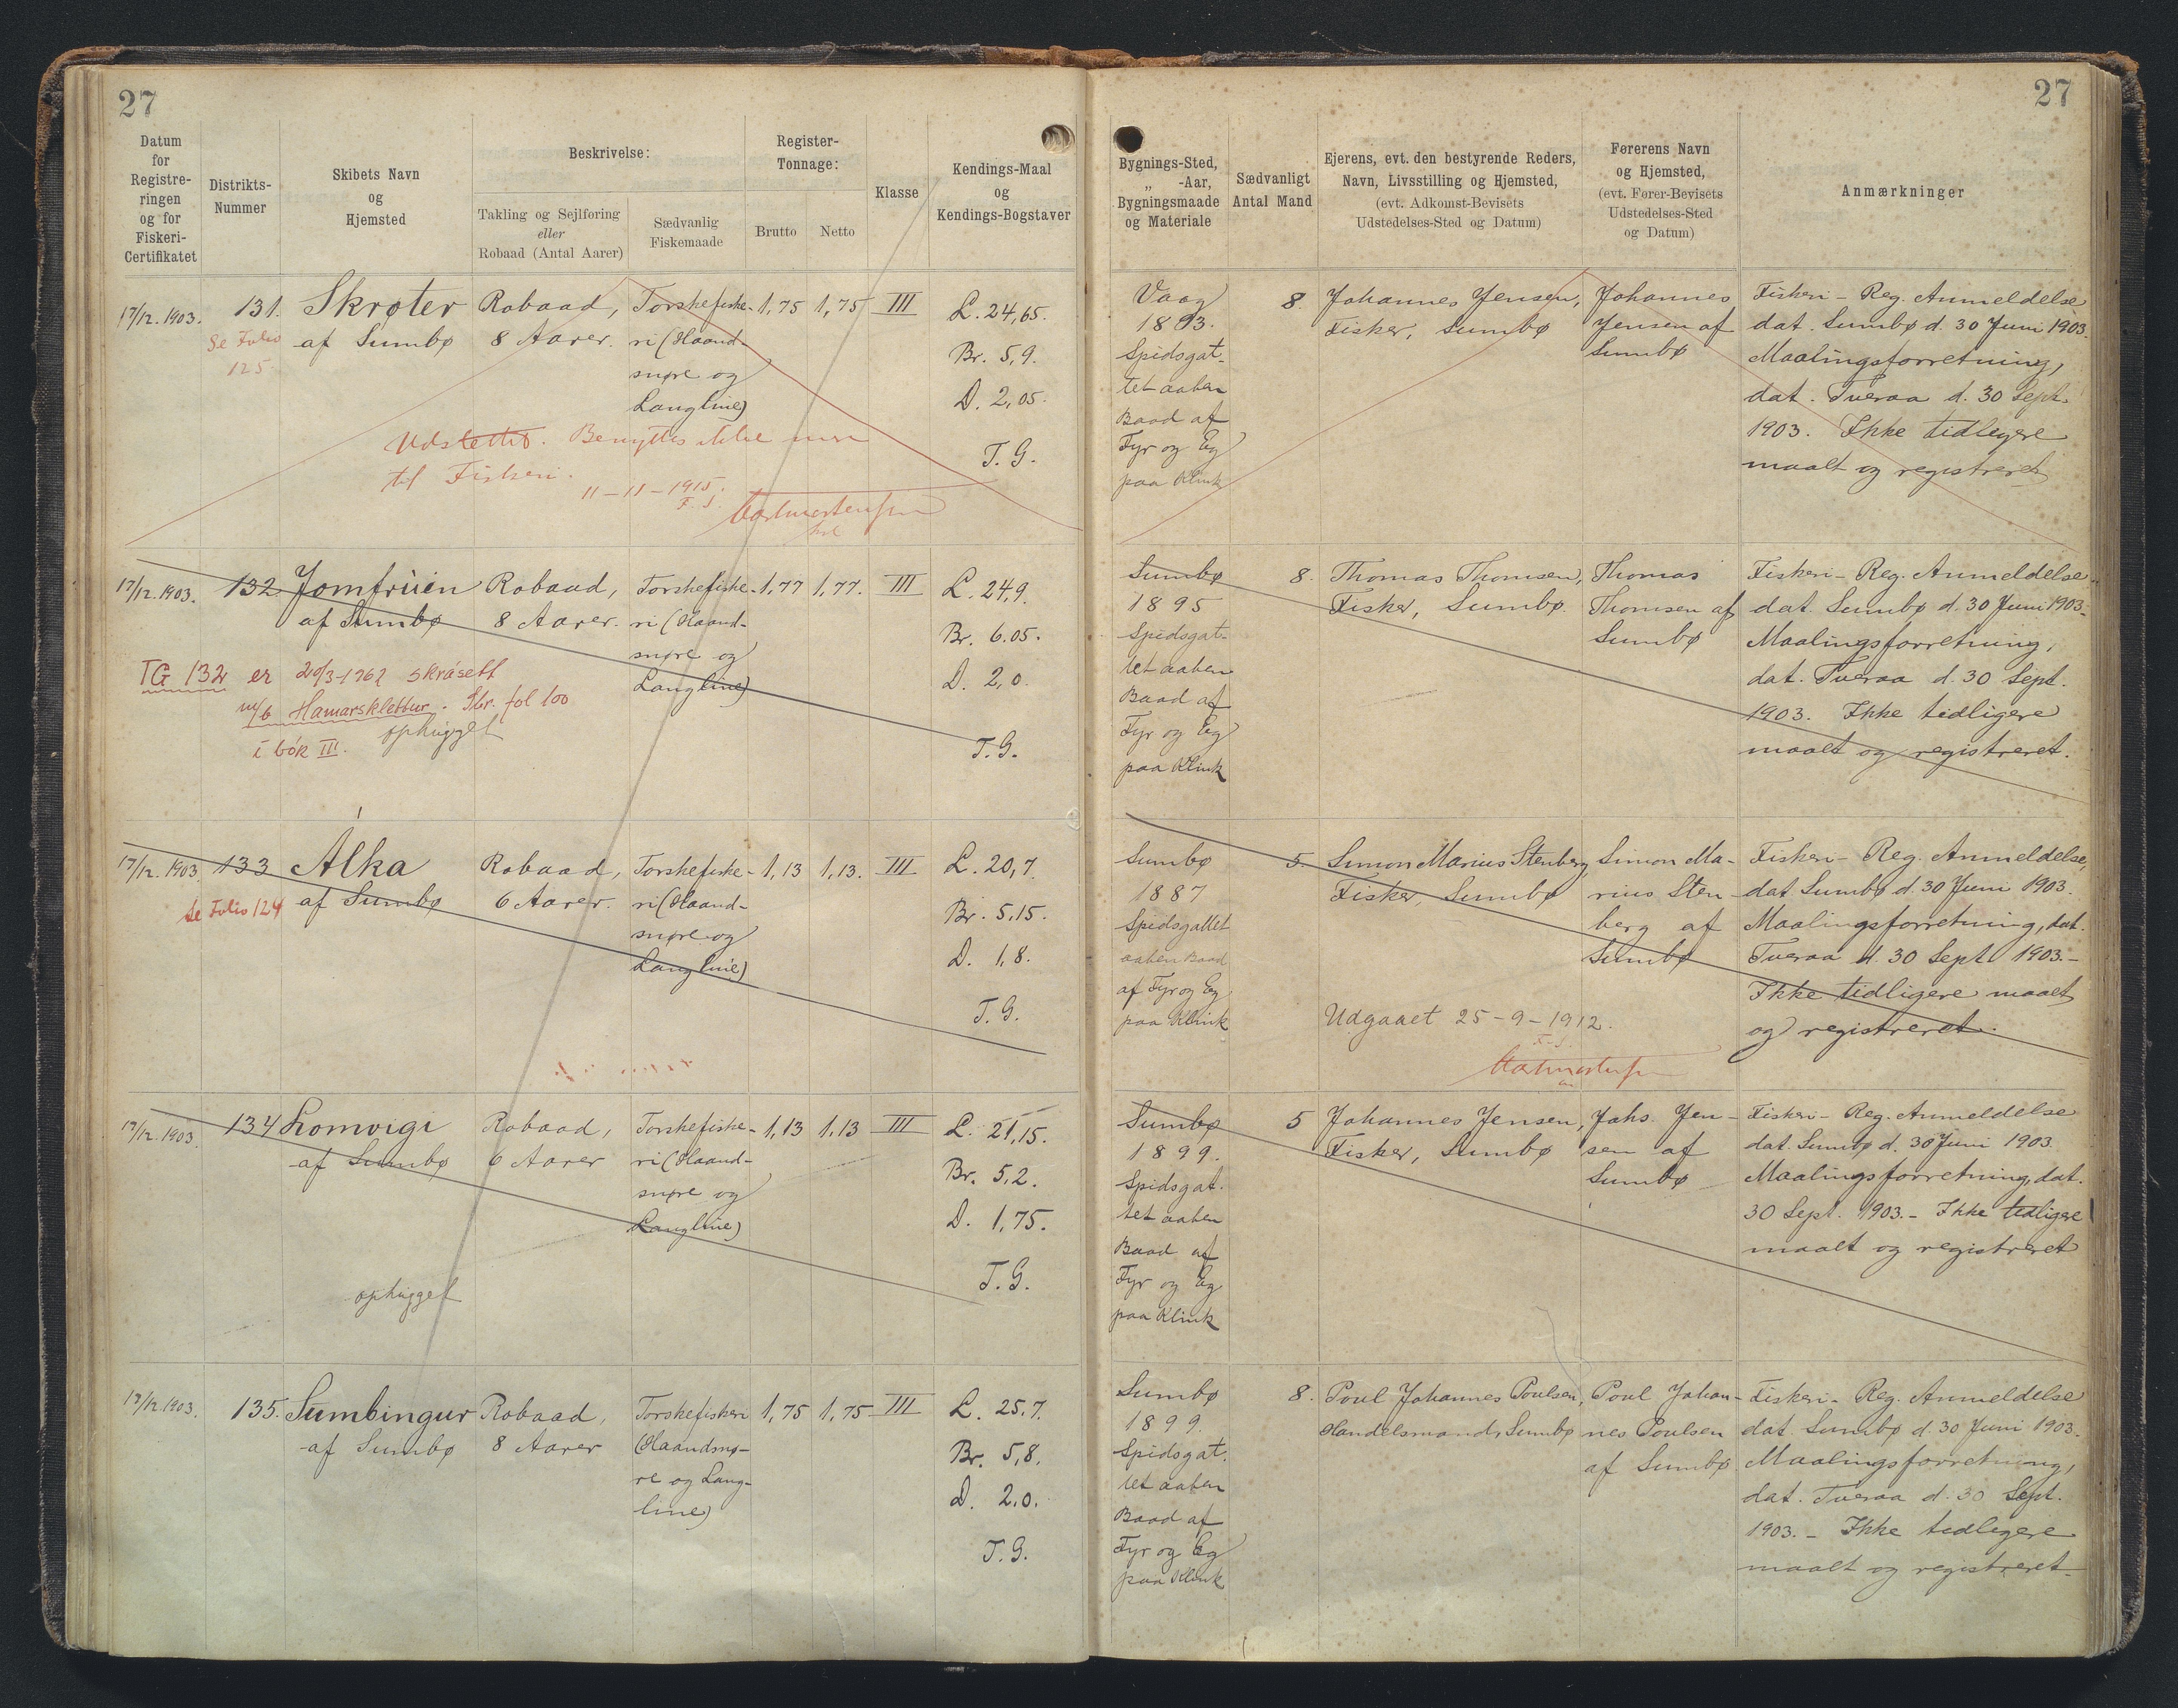 27
Datum
for
Registre-
ringen
og for
Fiskeri-
Certifikatet
Distrikts-
Nummer
Skibets Navn
og
Hjemsted
Beskrivelse:
Takling og Sejlføring
eller
Robaad (Antal Aarer)
Sædvanlig
Fiskemaade
Register-
Tonnage:
Brutto
Netto
Klasse
Kendings-Maal
og
Kendings-Bogstaver
17/12. 1903.
Se Folio
125
131.
Skrøter
af Sumbø
Robaad,
8 Aarer.
Torskefiske-
ri (Haand-
snøre og
Langline)
1,75
1,75
III
L. 24,65.
Br. 5,9.
D. 2,05.
T. G.
Udslettet. Benyttes ikke mere
til Fiskeri.
11-11-1915.
F. S.
17/12. 1903.
132
Jomfrúin
af Sumbø
Robaad,
8 Aarer.
Torskefiske-
ri (Haand-
snøre og
Langline)
1,77
1,77.
III
L. 24,9.
Br. 6.05.
D. 2,0.
T. G.
TG 132 er 20/3-1962 skrásett
m/b Hamarsklettur. Skr. fol 100
í bók III.
ophugget
17/12. 1903.
Se Folio 124
133
Álka
af Sumbø
Robaad,
6 Aarer.
Torskefiske-
ri (Haand-
snøre og
Langline)
1,13
1,13.
III
L. 20,7.
Br. 5,15.
D. 1,8.
T. G.
17/12. 1903.
134
Lomvigi
af Sumbø
Robaad,
6 Aarer
Torskefiske-
ri (Haand-
snøre og
Langline)
1,13
1,13
III
L. 21,15.
Br. 5,2.
D. 1,75.
T. G.
ophugget
17/12. 1903.
135.
Sumbingur
af Sumbø
Robaad,
8 Aarer
Torskefiskeri
(Haandsnø-
re og Lang-
line)
1,75
1,75
III
L. 25,7.
Br. 5,8.
D. 2.0.
T. G.
27
Bygnings-Sted,
„ -Aar,
Bygningsmaade
og Materiale
Sædvanligt
Antal Mand
Ejerens, evt. den bestyrende Reders,
Navn, Livsstilling og Hjemsted,
(evt. Adkomst-Bevisets
Udstedelses-Sted og Datum)
Førerens Navn
og Hjemsted,
(evt. Fører-Bevisets
Udstedelses-Sted
og Datum)
Anmærkninger
Vaag
1893.
Spidsgat-
tet aaben
Baad af
Fyr og Eg
paa Klink
8.
Johannes Jensen,
Fisker, Sumbø
Johannes
Jensen af
Sumbø
Fiskeri-Reg. Anmeldelse
dat. Sumbø d. 30 Juni 1903.
Maalingsforretning,
dat. Tveraa d. 30 Sept.
1903. Ikke tidligere
maalt og registreret
Sumbø
1895
Spidsgat-
tet aaben
Baad af
Fyr og Eg
paa Klink
8.
Thomas Thomsen,
Fisker, Sumbø.
Thomas
Thomsen af
Sumbø
Fiskeri-Reg. Anmeldelse
dat. Sumbø d. 30 Juni 1903.
Maalingsforretning,
dat. Tveraa d. 30 Sept.
1903. Ikke tidligere
maalt og registreret.
Sumbø
1887
Spidsgattet
aaben Baad
af Fyr og Eg
paa Klink
5.
Simon Marius Stenberg,
Fisker, Sumbø
Simon Ma-
rius Sten-
berg af
Sumbø
Fiskeri-Reg. Anmeldelse,
dat. Sumbø d. 30 Juni 1903.
Maalingsforretning, dat.
Tveraa d. 30 Sept. 1903.-
Ikke tidligere maalt
og registreret.
Udgaaet 25-9-1912.
F. S.
Sumbø
1899.
Spidsgat-
tet aaben
Baad af
Fyr og Eg
paa Klink
5
Johannes Jensen,
Fisker, Sumbø
Johs. Jen-
sen af
Sumbø
Fiskeri-Reg. Anmeldelse
dat. Sumbø d. 30 Juni 1903.
Maalingsforretning, dat.
30 Sept. 1903.- Ikke tidligere
maalt og registreret
Sumbø
1899.
Spidsgat-
tet aaben
Baad af
Fyr og Eg
paa Klink
8.
Poul Johannes Poulsen,
Handelsmand, Sumbø
Poul Johan-
nes Poulsen
af Sumbø
Fiskeri-Reg. Anmeldelse
dat. Sumbø d. 30 Juni 1903.
Maalingsforretning,
dat. Tveraa d. 30 Sept.
1903.- Ikke tidligere
maalt og registreret.